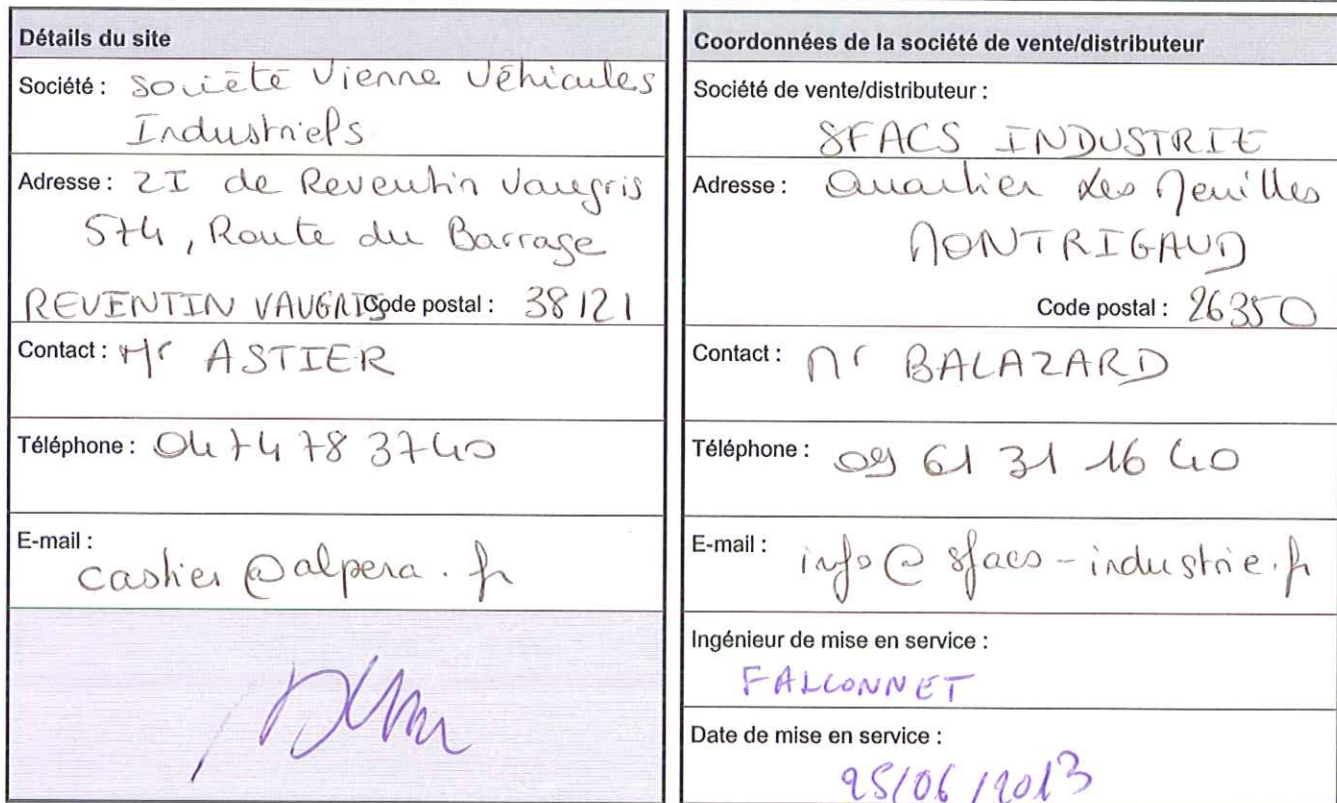 Détails du site
Société : Société Vienne Véhicules
Industriels
Adresse : ZI de Reventin Vaugris
574, Route du Barrage
REVENTIN VAUGRIS Code postal : 38121
Contact : Mr ASTIER
Téléphone : 04 74 78 37 40
E-mail :
castier@alpera.fr
Coordonnées de la société de vente/distributeur
Société de vente/distributeur :
SFACS INDUSTRIE
Adresse : Quartier Les
MONTRIGAUD
Code postal : 26350
Contact : Mr BALAZARD
Téléphone : 09 61 31 16 40
E-mail : info@sfacs-industrie.fr
Ingénieur de mise en service :
FALCONNET
Date de mise en service :
25/06/2013